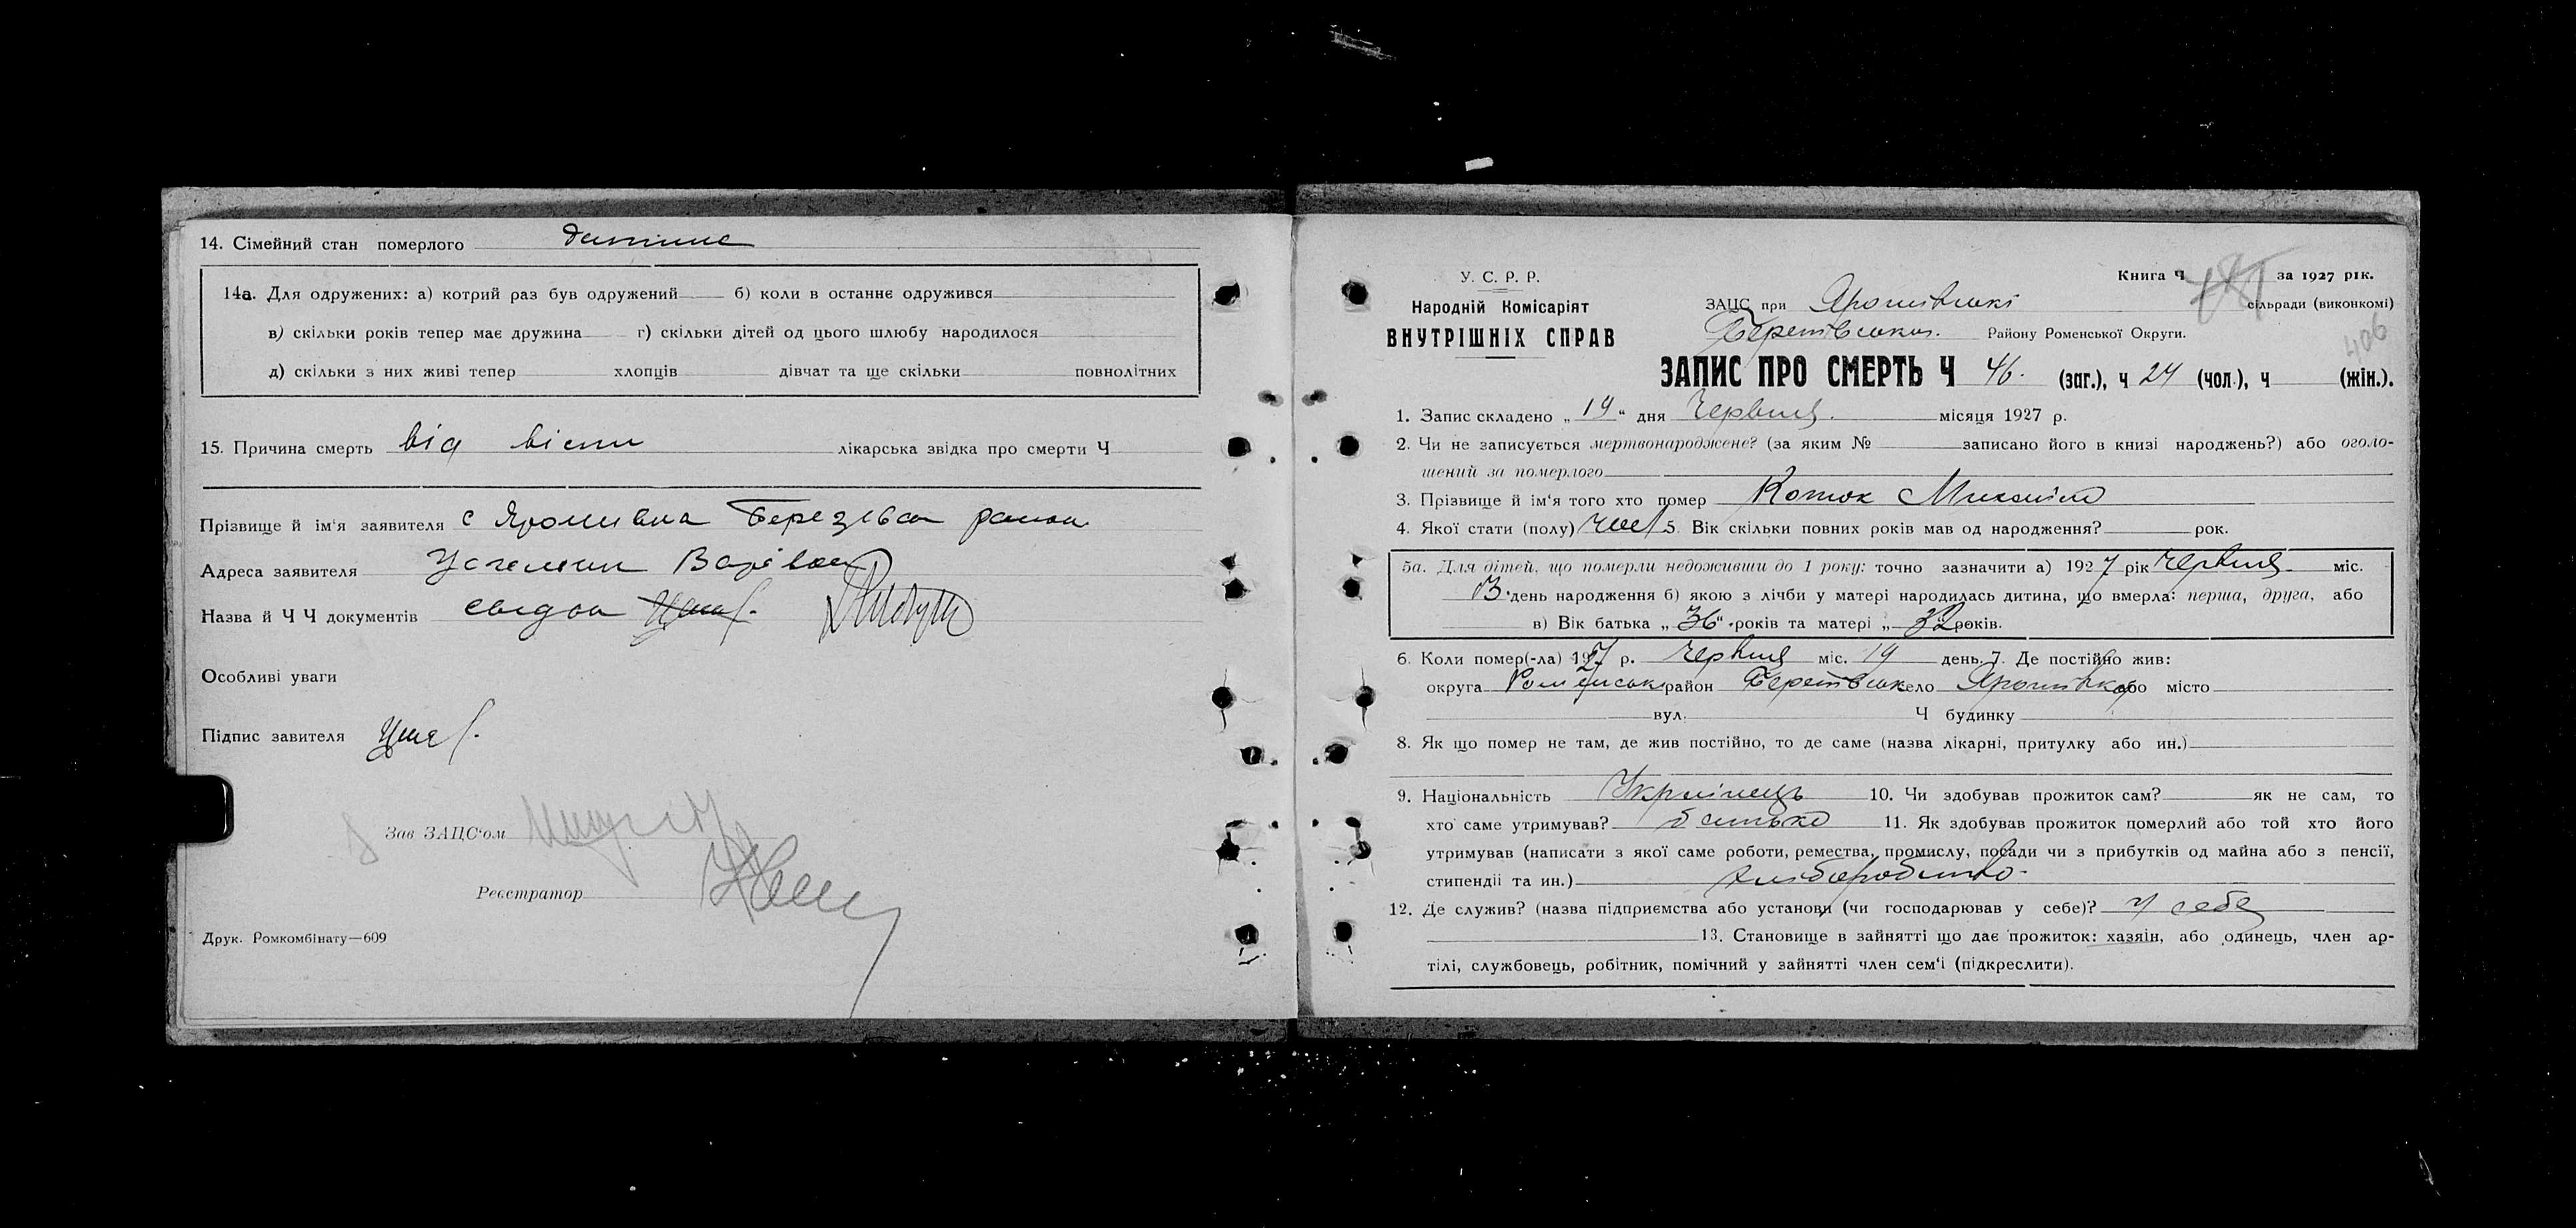 14. Сімейний стан померлого дитина
14а. Для одружених: а) котрий раз був одружений б) коли в останнє одружився
в) скільки років тепер має дружина г) скільки дітей од цього шлюбу народилося
д) скільки з них живі тепер хлопців дівчат та ще скільки повнолітних
15. Причина смерть від віспи лікарська звідка про смерти Ч
Прізвище й ім'я заявителя с Ярошівка район
Адреса заявителя
Назва й Ч Ч документів
Особливі уваги
Підпис завителя
Зав ЗАЦС'ом
Реєстратор
Друк. Ромкомбінату—609
Книга Ч за 1927 рік.
406
У. С. Р. Р.
Народній Комісаріят
ВНУТРІШНІХ СПРАВ
ЗАЦС при Ярошівські сільради (виконкомі)
Району Роменської Округи.
ЗАПИС ПРО СМЕРТЬ Ч 46. (заг.), ч 24 (чол.), ч (жін.).
1. Запис складено „19“ дня Червня. місяця 1927 р.
2. Чи не записується мертвонароджене? (за яким № записано його в книзі народжень?) або оголо-
шений за померлого
3. Прізвище й ім'я того хто помер Коток Михайло
4. Якої стати (полу) чол 5. Вік скільки повних років мав од народження? рок.
5а. Для дітей, що померли недоживши до 1 року: точно зазначити а) 1927 рік Червня. міс.
13 день народження б) якою з лічби у матері народилась дитина, що вмерла: перша, друга, або
в) Вік батька „36“ років та матері „32 років.
6. Коли помер(-ла) 1927 р. Червня міс. 19 день. 7. Де постійно жив:
округа Роменськ район село Ярошівка або місто
вул. Ч будинку
8. Як що помер не там, де жив постійно, то де саме (назва лікарні, притулку або ин.)
9. Національність Українець 10. Чи здобував прожиток сам? як не сам, то
хто саме утримував? батько 11. Як здобував прожиток померлий або той хто його
утримував (написати з якої саме роботи, ремества, промислу, посади чи з прибутків од майна або з пенсії,
стипендії та ин.) хліборобство.
12. Де служив? (назва підприємства або установи (чи господарював у себе)? у себе
13. Становище в зайнятті що дає прожиток: хазяїн, або одинець, член ар-
тілі, службовець, робітник, помічний у зайнятті член сем'і (підкреслити).